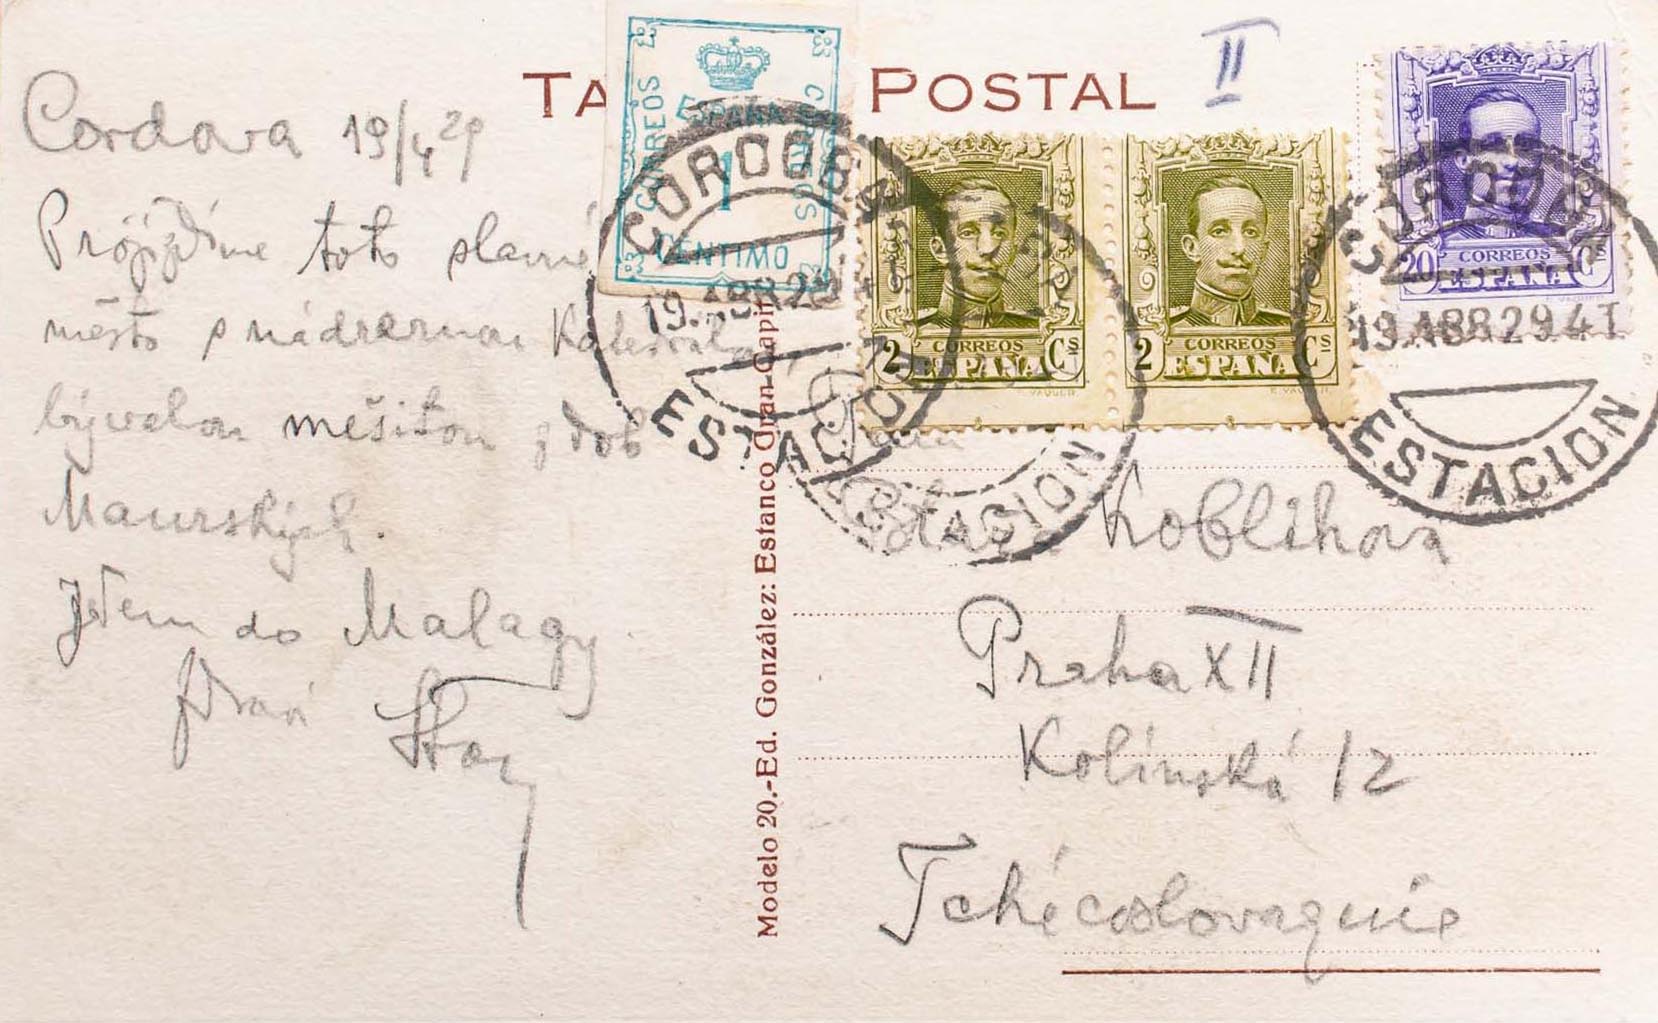 TA
POSTAL
II
CORREOS
ESPAÑA
CORREOS
1
CENTIMO
2 CORREOS Cs
ESPAÑA
2 CORREOS Cs
ESPAÑA
20 CORREOS Cs
ESPAÑA
CORDOBA
19.ABR.29
ESTACION
ESTACION
CORDOBA
19.ABR.29.4T
ESTACION
Cordova 19/4 29
Projíždíme toto slavné
město s nádhernou Katedrálou
bývalou mešitou z dob
Maurských.
Jdem do Malagy.
Modelo 20.-Ed. González: Estanco Gran Capit
Koblihova
Praha XII
Kolínská 12
Tchécoslovaquie